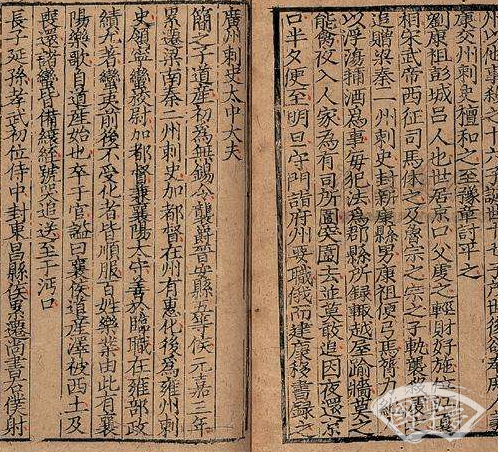 州以他事
康交州刺史檀和之至豫章討平之
劉康祖彭城呂人也世居京口父虔之輕財好施位江夏
相宋武帝西征司馬休之及魯宗之宗之子軌襲殺虔之
追贈梁秦二州刺史封新康縣男康祖便弓馬膂力
以浮蕩蒱酒為事每犯法為郡縣所録輙越屋踰牆莫之
能禽夜入人家為有司所圍突圍去並莫敢追因夜還京
口半夕便至明旦守門詣府州要職俄而建康移書録之
廣州刺史太中大夫
簡之子道産初為無錫令襲爵晉安縣五等侯元嘉三年
累遷梁南秦二州刺史加都督在州有惠化後為雍州刺
史領寧蠻校尉加都督兼襄陽太守善於臨職在雍部政
績尤著蠻夷前後不受化者皆順服百姓樂業由此有襄
陽樂歌自道産始也卒于官諡曰襄侯道産澤被西土及
喪還諸蠻皆備縗絰號哭追送至于沔口
長子延孫孝武初位侍中封東昌縣侯累遷尚書右僕射